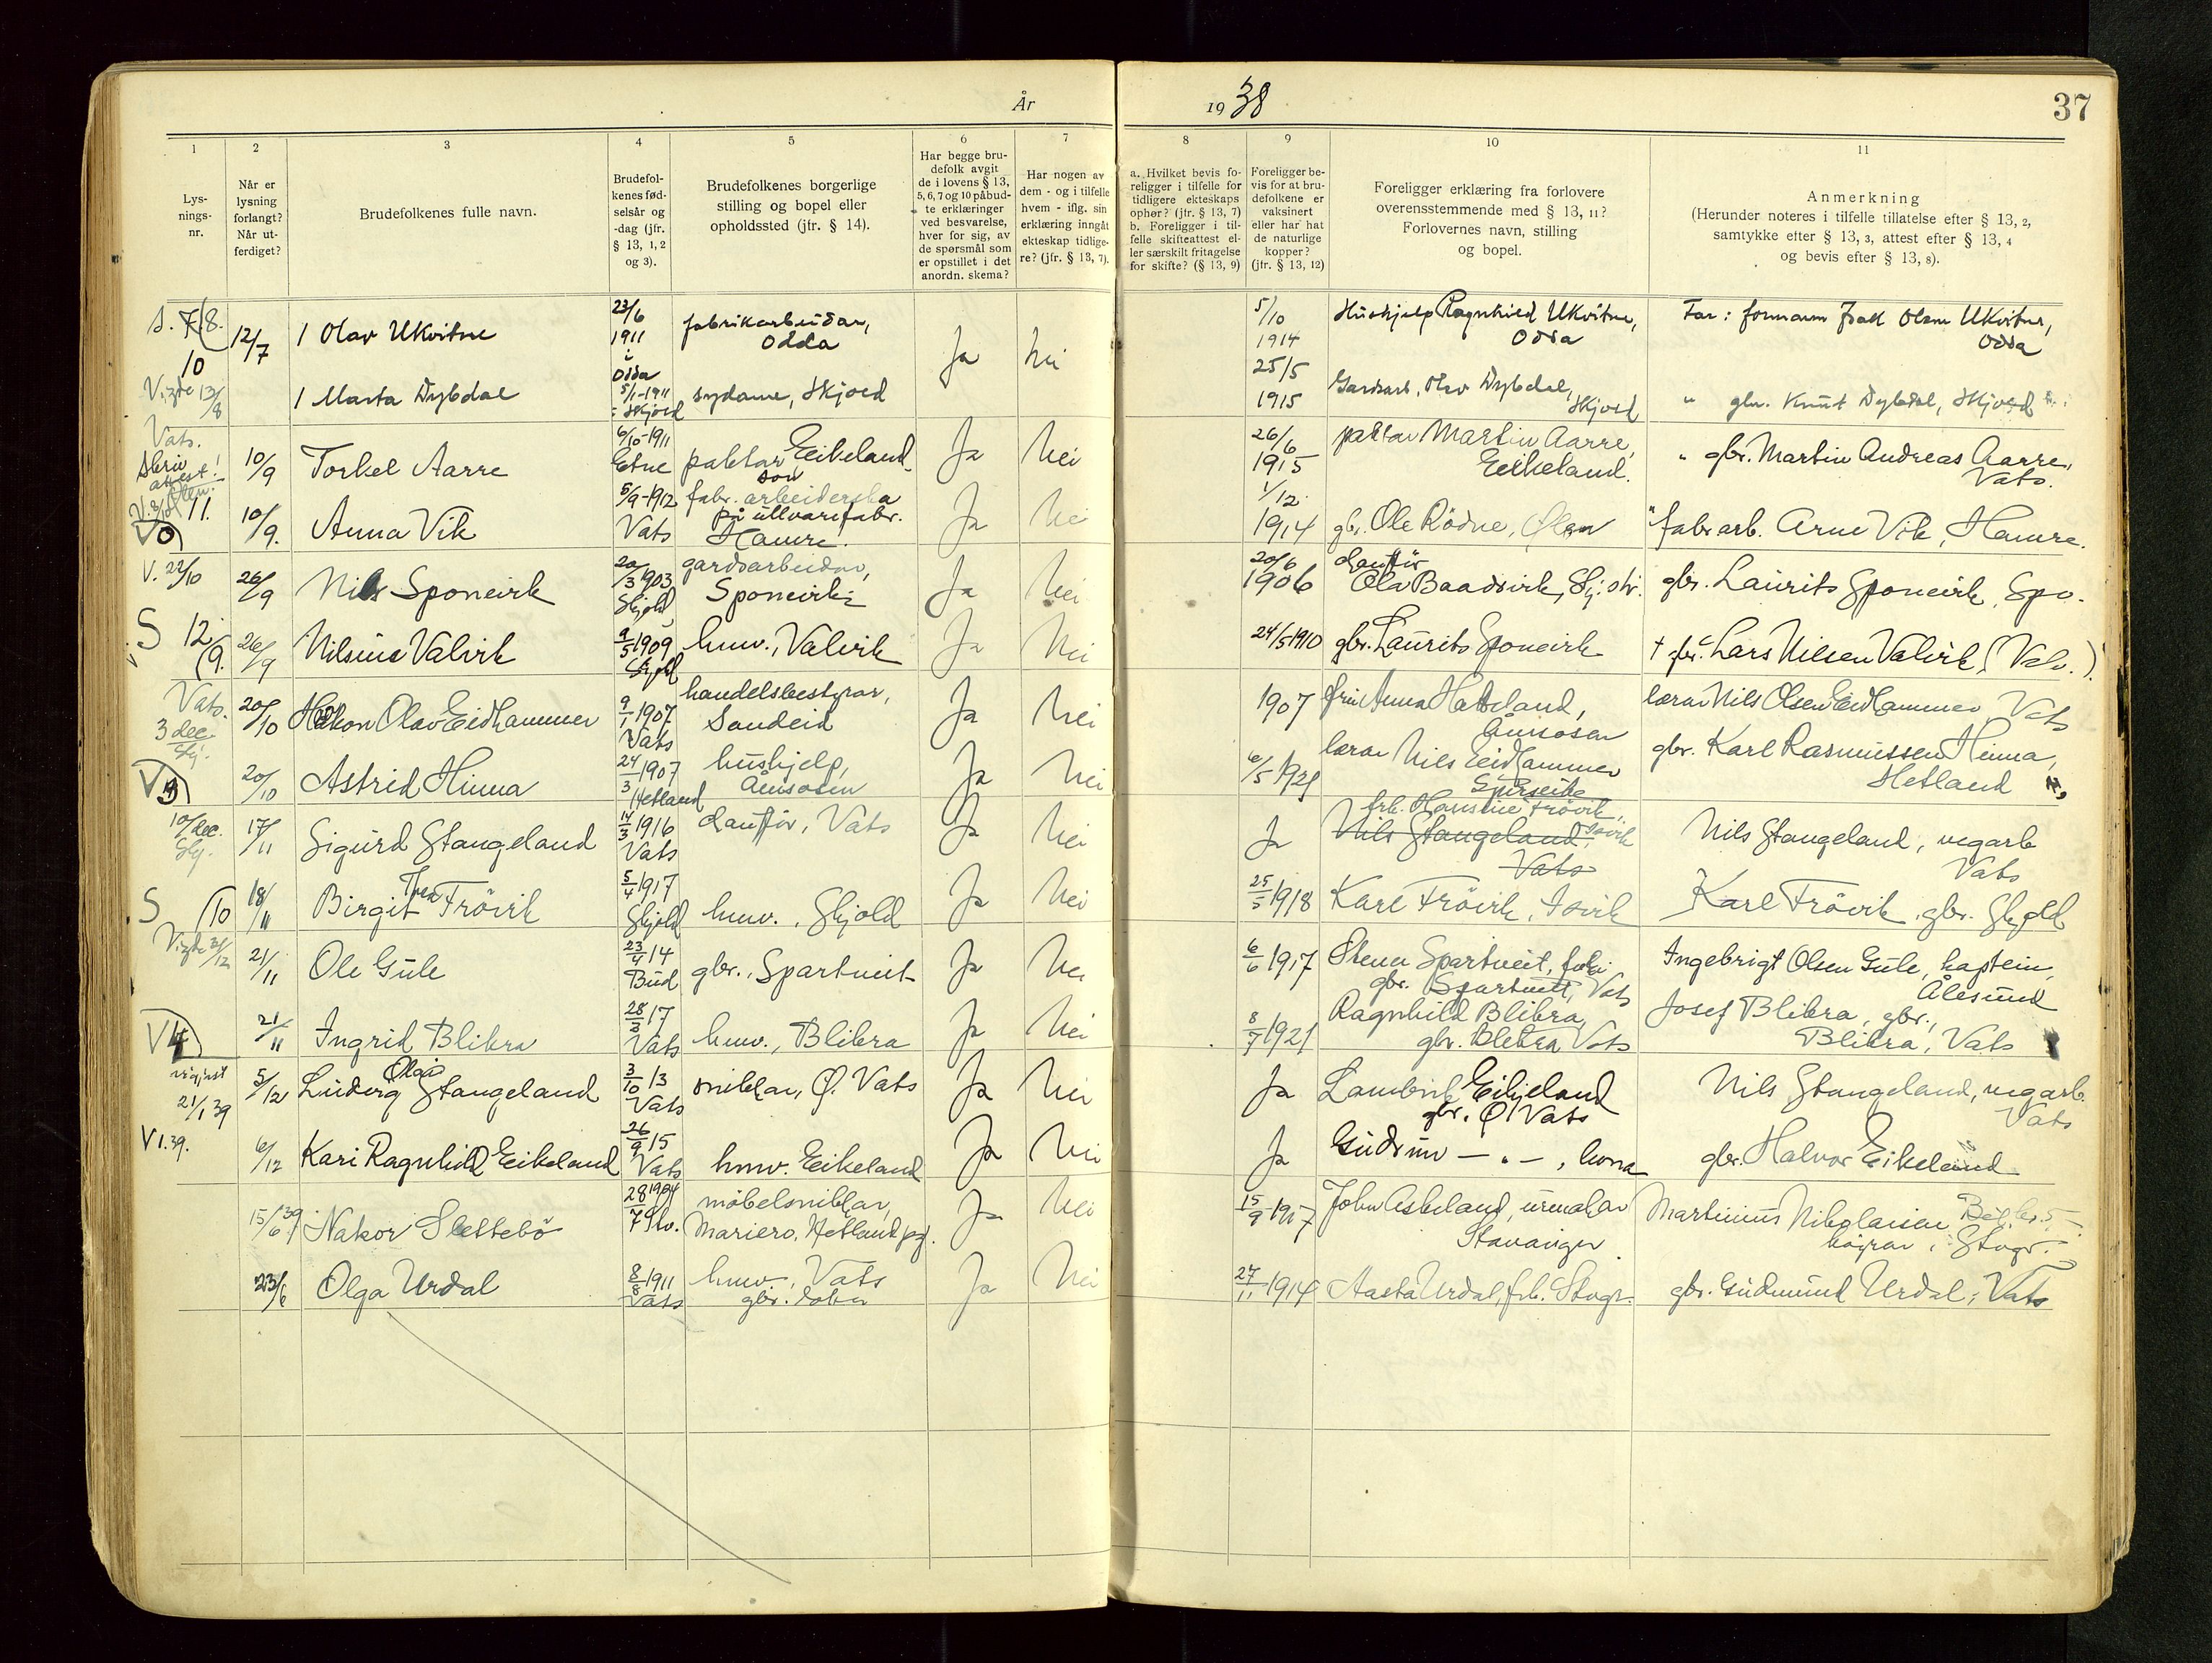 År
1938
37
1
2
3
4
5
6
7
8
9
10
11
Lys-
nings-
nr.
Når er
lysning
forlangt?
Når ut-
ferdiget?
Brudefolkenes fulle navn.
Brudefol-
kenes fød-
selsår og
-dag (jfr.
§ 13, 1, 2
og 3).
Brudefolkenes borgerlige
stilling og bopel eller
opholdssted (jfr. § 14).
Har begge bru-
defolk avgit
de i lovens § 13,
5, 6, 7 og 10 påbud-
te erklæringer
ved besvarelse,
hver for sig, av
de spørsmål som
er opstillet i det
anordn. skema?
Har nogen av
dem - og i tilfelle
hvem - iflg. sin
erklæring inngåt
ekteskap tidlige-
re? (jfr. § 13, 7).
a. Hvilket bevis fo-
religger i tilfelle for
tidligere ekteskaps
ophør? (jfr. § 13, 7)
b. Foreligger i til-
felle skifteattest el-
ler særskilt fritagelse
for skifte? (§ 13, 9)
Foreligger be-
vis for at bru-
defolkene er
vaksinert
eller har hat
de naturlige
kopper?
(jfr. § 13, 12)
Foreligger erklæring fra forlovere
overensstemmende med § 13, 11?
Forlovernes navn, stilling
og bopel.
Anmerkning
(Herunder noteres i tilfelle tillatelse efter § 13, 2,
samtykke efter § 13, 3, attest efter § 13, 4
og bevis efter § 13, 8).
10 12/7 Olav Ukvitne 23/6 1911 i Odda fabrikarbeidar, Odda Ja Nei 5/10 1914 Hushjelp Ragnhild Ukvitne, Odda Far: formann Olsen Ukvitne, Odda
Vigde 13/8 Marta Dybdal 5/1-1911 Skjold sydame, Skjold 25/5 1915 Gardsarb. Olav Dybdal, Skjold " gbr. Knut Dybdal, Skjold
Vats. Skriv attest! 10/9 Torkel Aarre 6/10-1911 Etne paktarson Eikeland Ja Nei 26/6 1915 paktar Martin Aarre, Eikeland. " gbr. Martin Andreas Aarre, Vats.
11. 10/9. Anna Vik 5/9-1912 Vats fabr. arbeiderska på ullvarefabr. Hamre. Ja Nei 1/12 1914 gbr. Ole Rödne, Ølen " fabr arb. Arne Vik, Hamre.
V. 22/10 26/9 Nils Sponevik 20/3 1903 Skjold gardsarbeidar, Sponevik Ja Nei 20/6 1906 Ola Baadsvik, Skj. gbr. Laurits Sponevik, Spo.
S 12 (9. 26/9 Nilsine Valvik 9/5 1909 Skjold hmv., Valvik Ja Nei 24/5 1910 gbr. Laurits Sponevik † gbr. Lars Nilsen Valvik (Valv.)
Vats. 3 dec Skj. 20/10 Håkon Olav Eidhammer 9/1 1907 Vats handelsbestyrar, Sandeid Ja Nei 1907 fru Anna Hatteland, Åmsosen lærar Nils Olsen Eidhammer, Vats
20/10 Astrid Hinna 24/3 1907 Hetland hushjelp, Åmsosen Ja Nei 6/5 1929 lærar Nils Eidhammer gbr. Karl Rasmussen Hinna, Hetland
10/dec. Skj. 17/11 Sigurd Stangeland 14/3 1916 Vats Vats Ja Nei Ja frk. Hansine Frövik, Isvik Nils Stangeland Vats Nils Stangeland, vegarb Vats
S /10 18/11 Birgit Thea Frövik 5/4 1917 Skjold hmv., Skjold Ja Nei 25/5 1918 Karl Frövik, Isvik Karl Frövik, gbr. Skjold
Vigde 31/12 21/11 Ole Gule 23/4 14 Bud gbr., Spartveit Ja Nei 6/6 1917 Spartveit, gbr. Spartveit, Vats Ingebrigt Olsen Gule, kaptein, Ålesund
V4 21/11 Ingrid Blikra 28/3 17 Vats hmv., Blikra Ja Nei 8/7 1921 Ragnhild Blikra, gbr. Blikra Vats Josef Blikra, gbr., Blikra, Vats
21/1 39 5/12 Ludvig Olai Stangeland 3/10 13 Vats snikkar, Ø. Vats Ja Nei Ja Lambrik Eikjeland gbr. Ø. Vats Nils Stangeland, vegarb. Vats
V 1.39. 6/12 Kari Ragnhild Eikeland 26/9 15 Vats hmv. Eikeland Ja Nei Ja Gudrun — " — , kona gbr. Halvor Eikeland
15/6 39 Nakor Slettebö 28/7 1904 Stv. möbelsnikkar, Mariero, Hetland pgj. Ja Nei 15/9 1907 John Askeland, urmakar Stavanger Martinius Nikolaisen i Stvgr.
23/6 Olga Urdal 8/8 1911 Vats hmv., Vats gbr. doter Ja Nei 27/11 1914 Aasta Urdal, frk. Stvgr. gbr. Gudmund Urdal, Vats